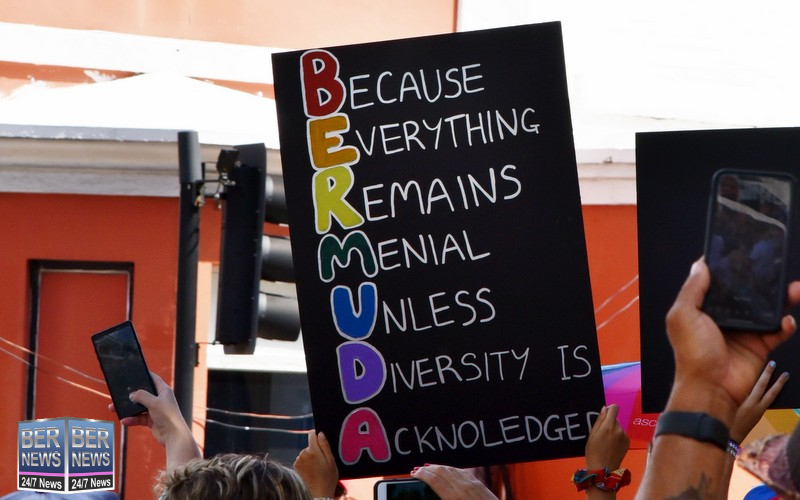 BECAUSE
EVERYTHING
REMAINS
MENIAL
UNLESS
DIVERSITY IS
ACKNOLEDGED
asc
BER BER
NEWS NEWS
24/7 News 24/7 News